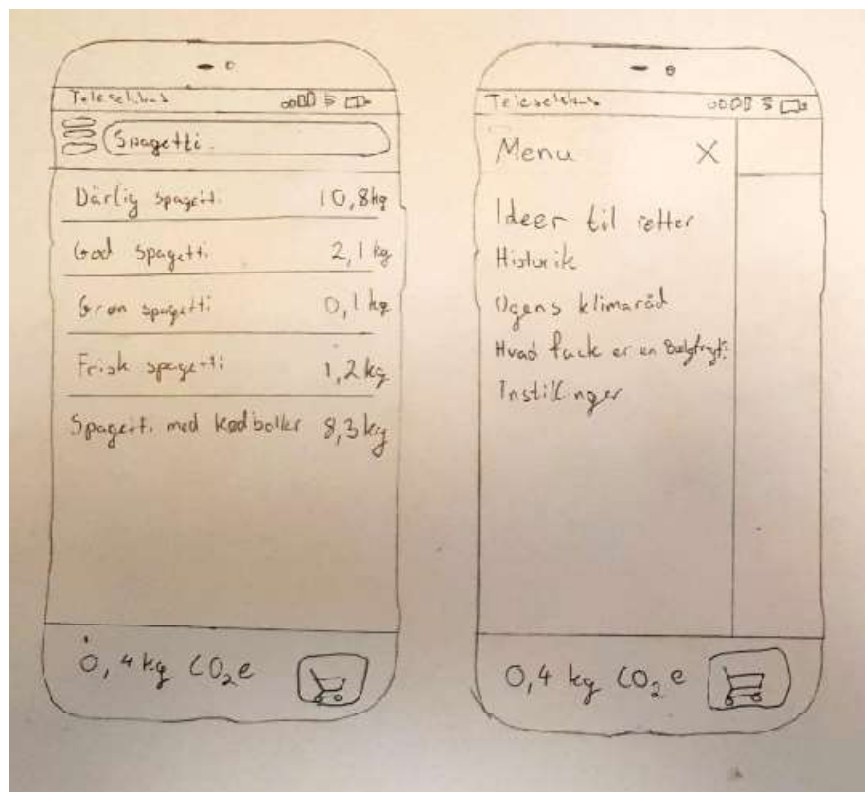 Teleselskab
Spagetti
Dårlig spagetti 10,8 kg
God spagetti 2,1 kg
Grøn spagetti 0,1 kg
Frisk spagetti 1,2 kg
Spagetti med kødboller 8,3 kg
0,4 kg CO₂e
Teleselskab
Menu X
Ideer til retter
Historik
Ugens klimaråd
Hvad fuck er en Bælgfrugt?
Instillinger
0,4 kg CO₂e